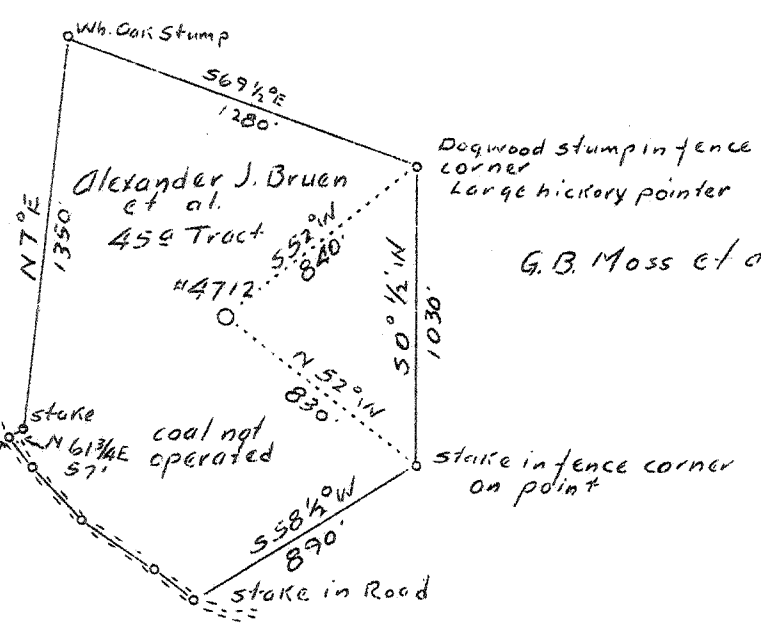 Wh. Oak Stump
S69½°E
1280'
Dogwood stump in fence
corner
Large hickory pointer
Alexander J. Bruen
et al.
45a Tract
N7°E
1350'
S52°W
840'
G.B. Moss et a
#4712
S0°½'W
1030'
N52°W
830'
stake
N61¾E
57'
coal not
operated
stake in fence corner
on point
S58½°W
890'
stake in Road